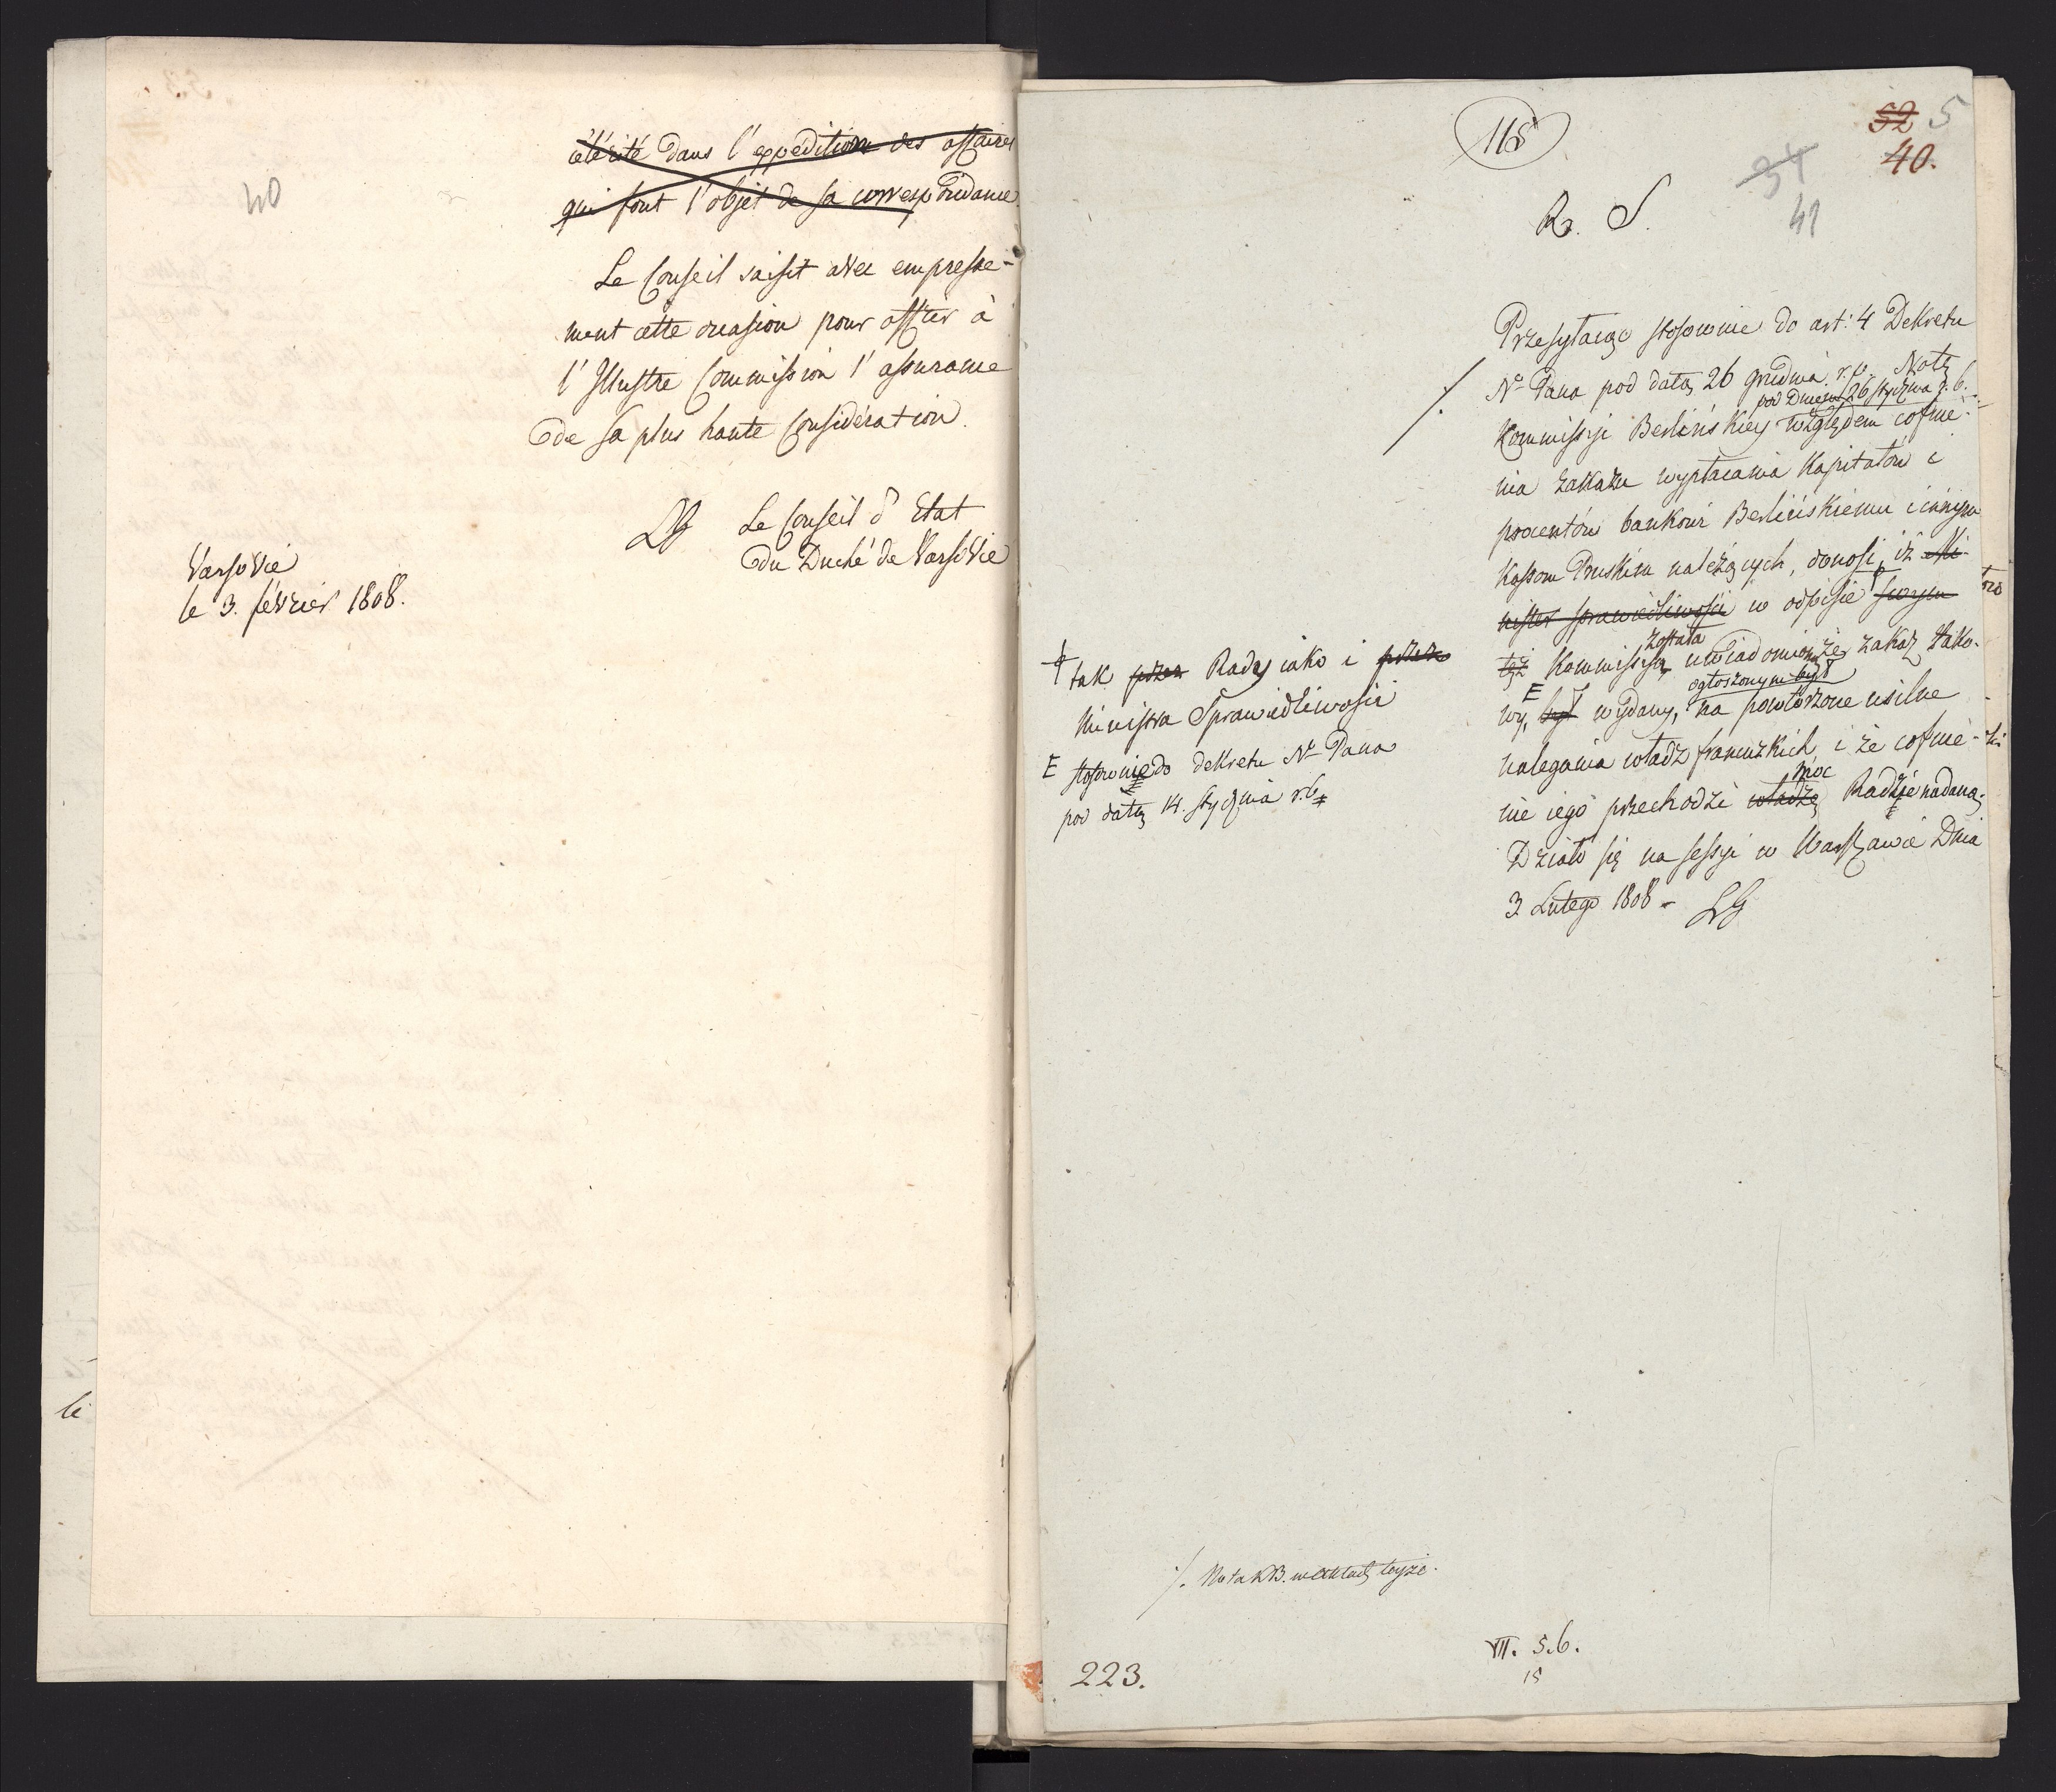 40
célérité dans l'expédition des affaires
qui font l'objet de sa correspondance
Le Conseil saisit avec empresse-
ment cette occasion pour offrir à
l'Illustre Commission l'assurance
de sa plus haute Considération.
LG Le Conseil d'Etat
du Duché de Varsovie
Varsovie
le 3. février 1808.
le
118
52 5
40.
34
41
R. S.
Przesyłaiąc stosownie do art: 4 Dekretu
Nº Pana pod datą 26 grudnia r. p. Notę
pod Dniem 26 stycznia r. b.
Kommissyi Berlińskiey względem cofnie-
nia zakazu wypłacania kapitałów i
procentów bankowi Berlińskiemu i innym
kassom Pruskim należących, donosi, iż Mi-
nister sprawiedliwości w odpisie swym
została
też Kommissya uwiadomiona że zakaz tako-
ogłoszonym był
wy, E był wydany, na powtórzone usilne
nalegania władz francuzkich, i że cofnie-
moc
nie iego przechodzi władzę Radzie nadaną.
Działo się na sessyi w Warszawie Dnia
3 Lutego 1808 - LG
tak przez Radę iako i przez
Ministra Sprawiedliwości
E stosownie do dekretu Nº Pana
pod datą 14. stycznia r. b.
/. Nota KB. w aktach teyże.
VII. 5.6.
15
223.